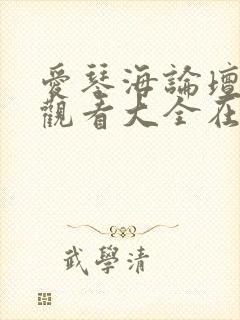 愛琴海論壇
觀看大全在
武學清